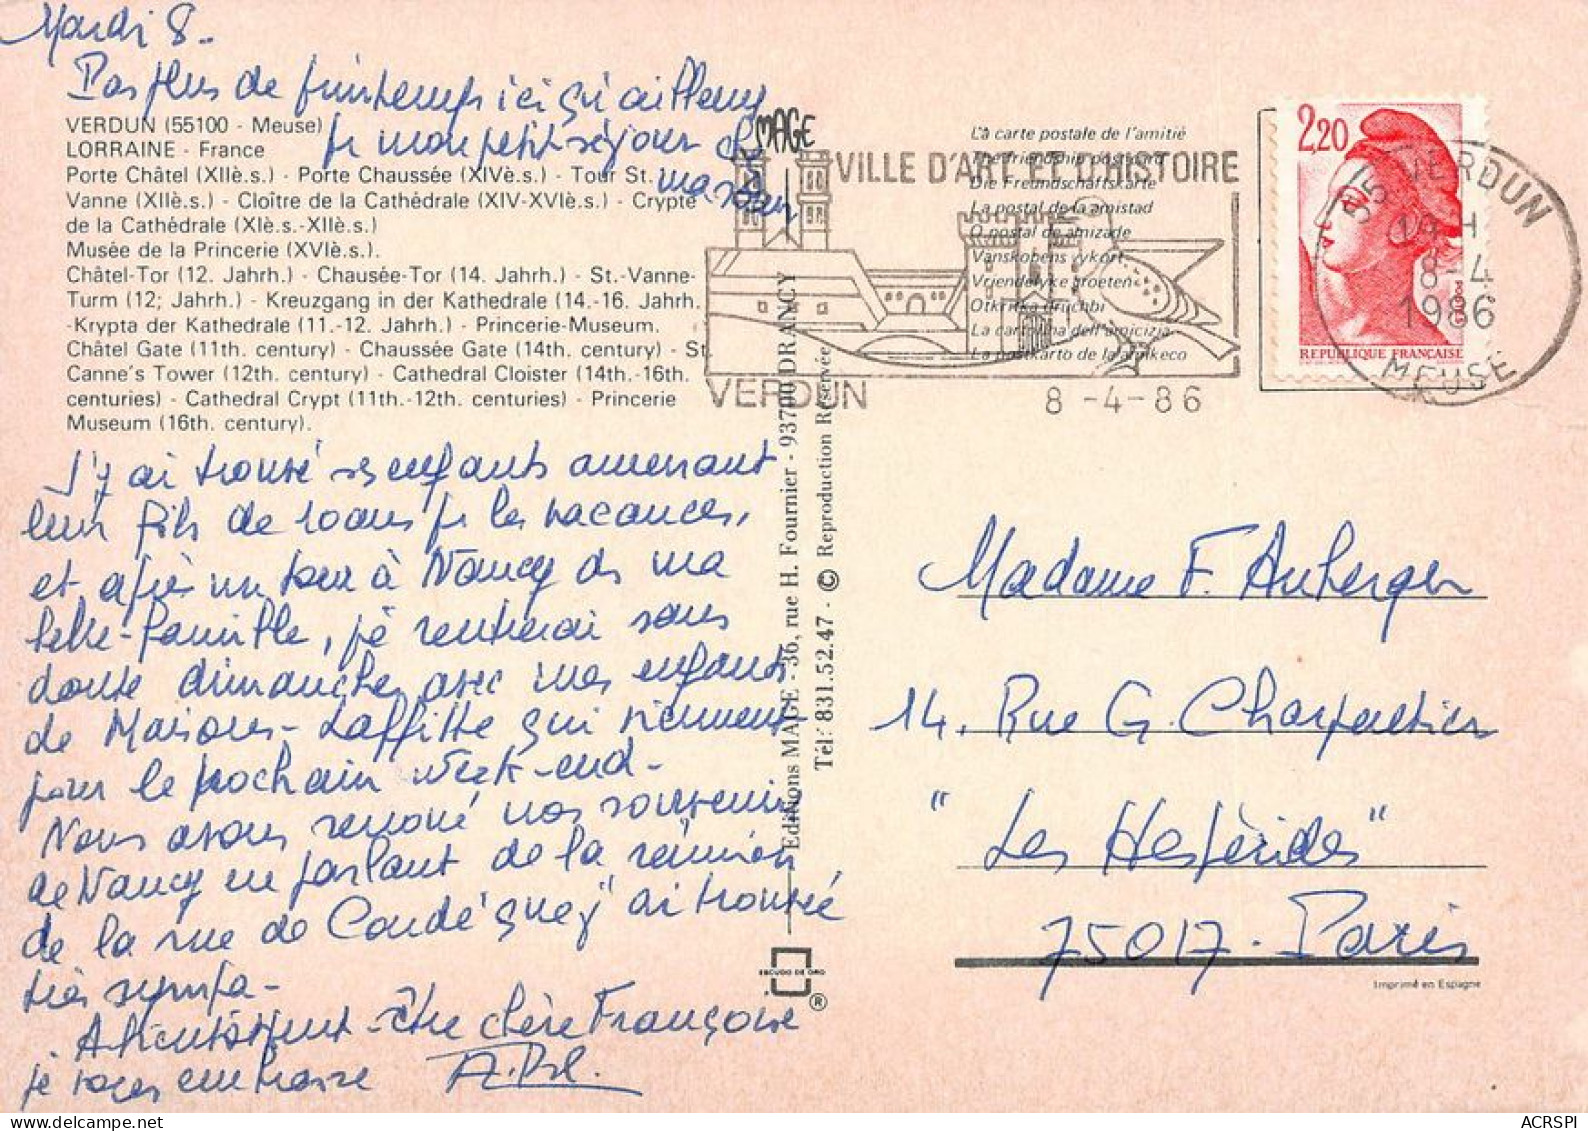 Mardi 8.
Pas plus de printemps ici qu'ailleurs
pr mon petit séjour chez
ma sœur
VERDUN (55100 - Meuse)
LORRAINE - France
Porte Châtel (XIIè.s.) - Porte Chaussée (XIVè.s.) - Tour St.
Vanne (XIIè.s.) - Cloître de la Cathédrale (XIV-XVIè.s.) - Crypte
de la Cathédrale (XIè.s.-XIIè.s.)
Musée de la Princerie (XVIè.s.).
Châtel-Tor (12. Jahrh.) - Chausée-Tor (14. Jahrh.) - St.-Vanne-
Turm (12; Jahrh.) - Kreuzgang in der Kathedrale (14.-16. Jahrh.
-Krypta der Kathedrale (11.-12. Jahrh.) - Princerie-Museum.
Châtel Gate (11th. century) - Chaussée Gate (14th. century) - St.
Canne's Tower (12th. century) - Cathedral Cloister (14th.-16th.
centuries) - Cathedral Crypt (11th.-12th. centuries) - Princerie
Museum (16th. century).
J'y ai trouvé ses enfants amenant
leur fils de 10 ans pr les vacances,
et après un tour à Nancy ds ma
belle-famille, je rentrerai sans
doute dimanche avec mes enfants
de Maisons-Laffitte qui viennent
pour le prochain week-end-
Nous avons renoué nos souvenirs
de Nancy en parlant de la réunion
de la rue de Condé que j'ai trouvée
très sympa-
Affectueusement chère Françoise
je vous embrasse
MAGE
Editions MAGE - 36, rue H. Fournier - 93700 DRANCY
Tél: 831.52.47 - © Reproduction Réservée
ESCUDO DE ORO
®
La carte postale de l'amitié
The friendship postcard
Die Freundschaftskarte
La postal de la amistad
O postal de amizade
Vanskabens vykort
Vriendelyke groeten
Otkritka druchbi
La cartolina dell'amicizia
La postkarto de la amikeco
VILLE D'ART ET D'HISTOIRE
VERDUN
8 -4-86
2,20
REPUBLIQUE FRANÇAISE
POSTES
55 VERDUN
19 H
8-4
1986
MEUSE
Madame F. Auberger
14, Rue G. Charpentier
"Les Hespérides"
75017. Paris
Imprimé en Espagne
ACRSPI